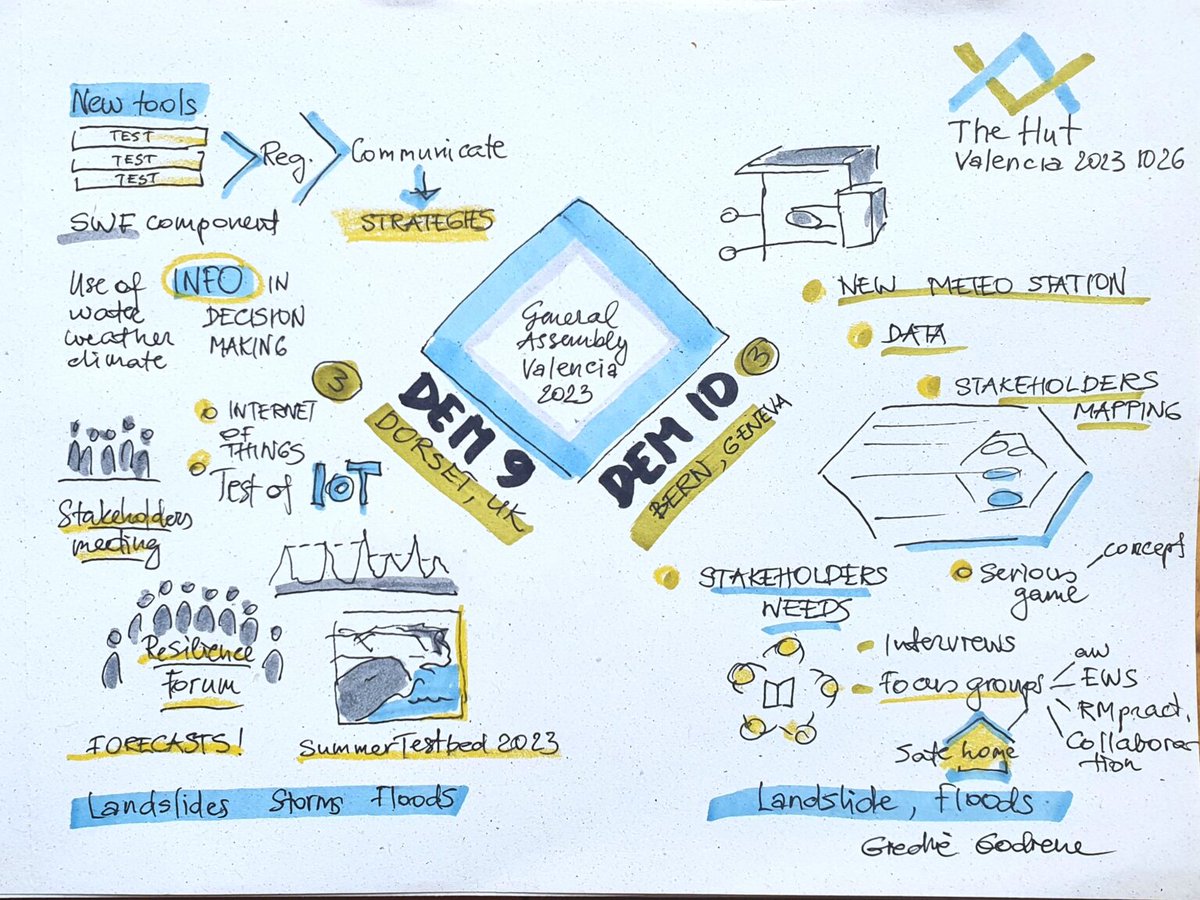 New tools
TEST
TEST
TEST
Reg.
Communicate
STRATEGIES
SWE component
Use of
INFO
IN
DECISION
MAKING
weather
climate
3
INTERNET
OF
THINGS
Test of IOT
Stakeholders
meeting
Resilience
Forum
FORECASTS!
Summer Testbed 2023
Landslides Storms Floods
General
Assembly
Valencia
2023
DEM 9
DORSET, UK
DEM 10
3
BERN, GENEVA
The Hut
Valencia 2023 10 26
NEW METEO STATION
DATA
STAKEHOLDERS
MAPPING
serious
game
concept
STAKEHOLDERS
NEEDS
Interviews
Focus groups
EWS
RM pract.
Collabora
tion
Safe home
Landslide, Floods